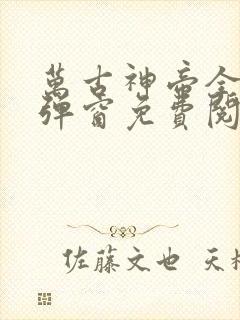 萬古神帝全
彈窗免費閱
佐藤文也 天